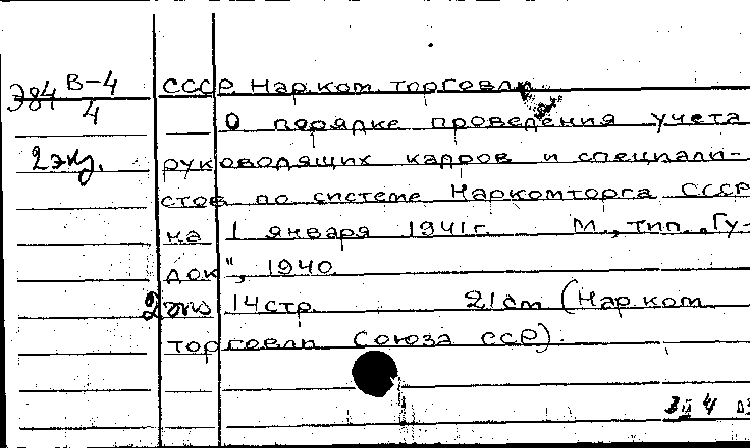 Э84 В-4
4
СССР. Нар. ком. торговли.
О порядке проведения учета
2 экз.
руководящих кадров и специали-
стов по системе Наркомторга СССР
на 1 января 1941 г. М., тип. „Гу-
док", 1940.
14 стр. 21 см (Нар. ком.
торговли Союза ССР).